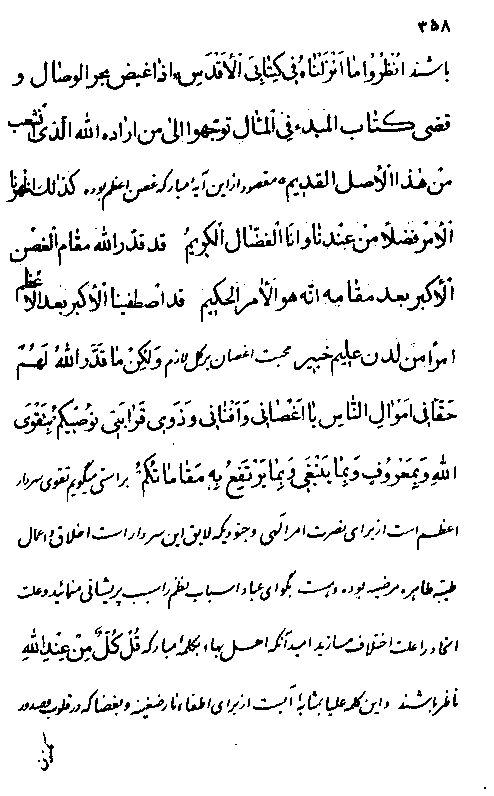 ٣٥٨
باشند اُنْظُرُوا ما اَنْزَلْناهُ فی کِتابِیَ الْأَقْدَسِ اذا غیض بحر الوصال و
قضی کتاب المبدء فی المآل توجّهوا الی من اراده الله الّذی انشعب
من هذا الأصل القدیم مقصود از این آیهٔ مبارکه غصن اعظم بوده کذلک اظهرنا
الأمر فضلاً من عندنا و انا الفضّال الکریم قد قدّر الله مقام الغصن
الأکبر بعد مقامه انّه هو الآمر الحکیم قد اصطفینا الأکبر بعد الأعظم
امراً من لدن علیم خبیر محبت اغصان بر کل لازم وَلکِنْ ما قَدَّرَ اللهُ لَهُمْ
حَقّاً فی اَمْوالِ النّاسِ یا اَغْصانی وَ اَفْنانی وَ ذَوی قَرابَتی نُوصیکُمْ بِتَقْوَی
اللهِ وَ بِمَعْرُوفٍ وَ بِما یَنْبَغی وَ بِما یَرْتَفِعُ بِهِ مَقاماتُکُمْ براستی میگویم تقوی سردار
اعظم است از برای نصرت امر الهی و جنودیکه لایق این سردار است اخلاق و اعمال
طیبهٔ طاهرهٔ مرضیه بوده و هست بگو ای عباد اسباب نظم را سبب پریشانی منمائید و علت
اتحاد را علت اختلاف مسازید امید آنکه اهل بهاء بکلمهٔ مبارکه قُلْ کُلٌّ مِنْ عِنْدِ اللهِ
ناظر باشند و این کلمهٔ علیا بمثابهٔ آبست از برای اطفاء نار ضغینه و بغضا که در قلوب و صدور